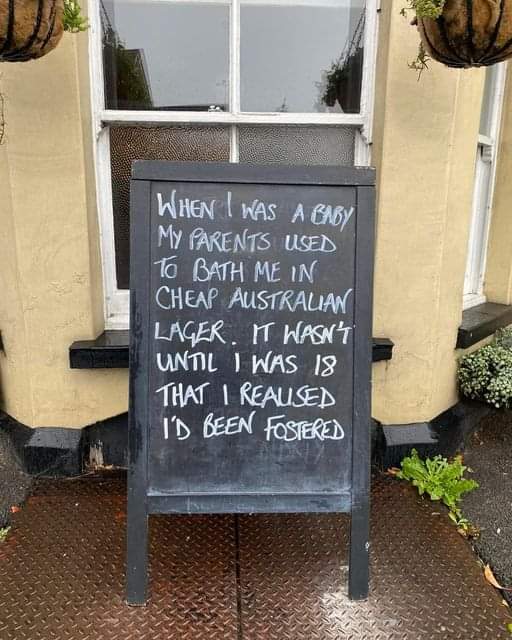 WHEN I WAS A BABY
MY PARENTS USED
TO BATH ME IN
CHEAP AUSTRALIAN
LAGER. IT WASN'T
UNTIL I WAS 18
THAT I REALISED
I'D BEEN FOSTERED